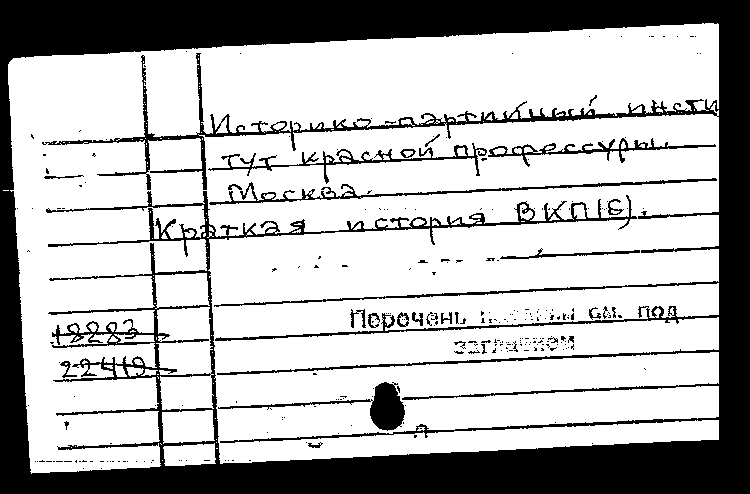 Историко-партийный инсти
тут красной профессуры.
Москва.
Краткая история ВКП(б).
Перечень см. под
заглавием
18283
22419